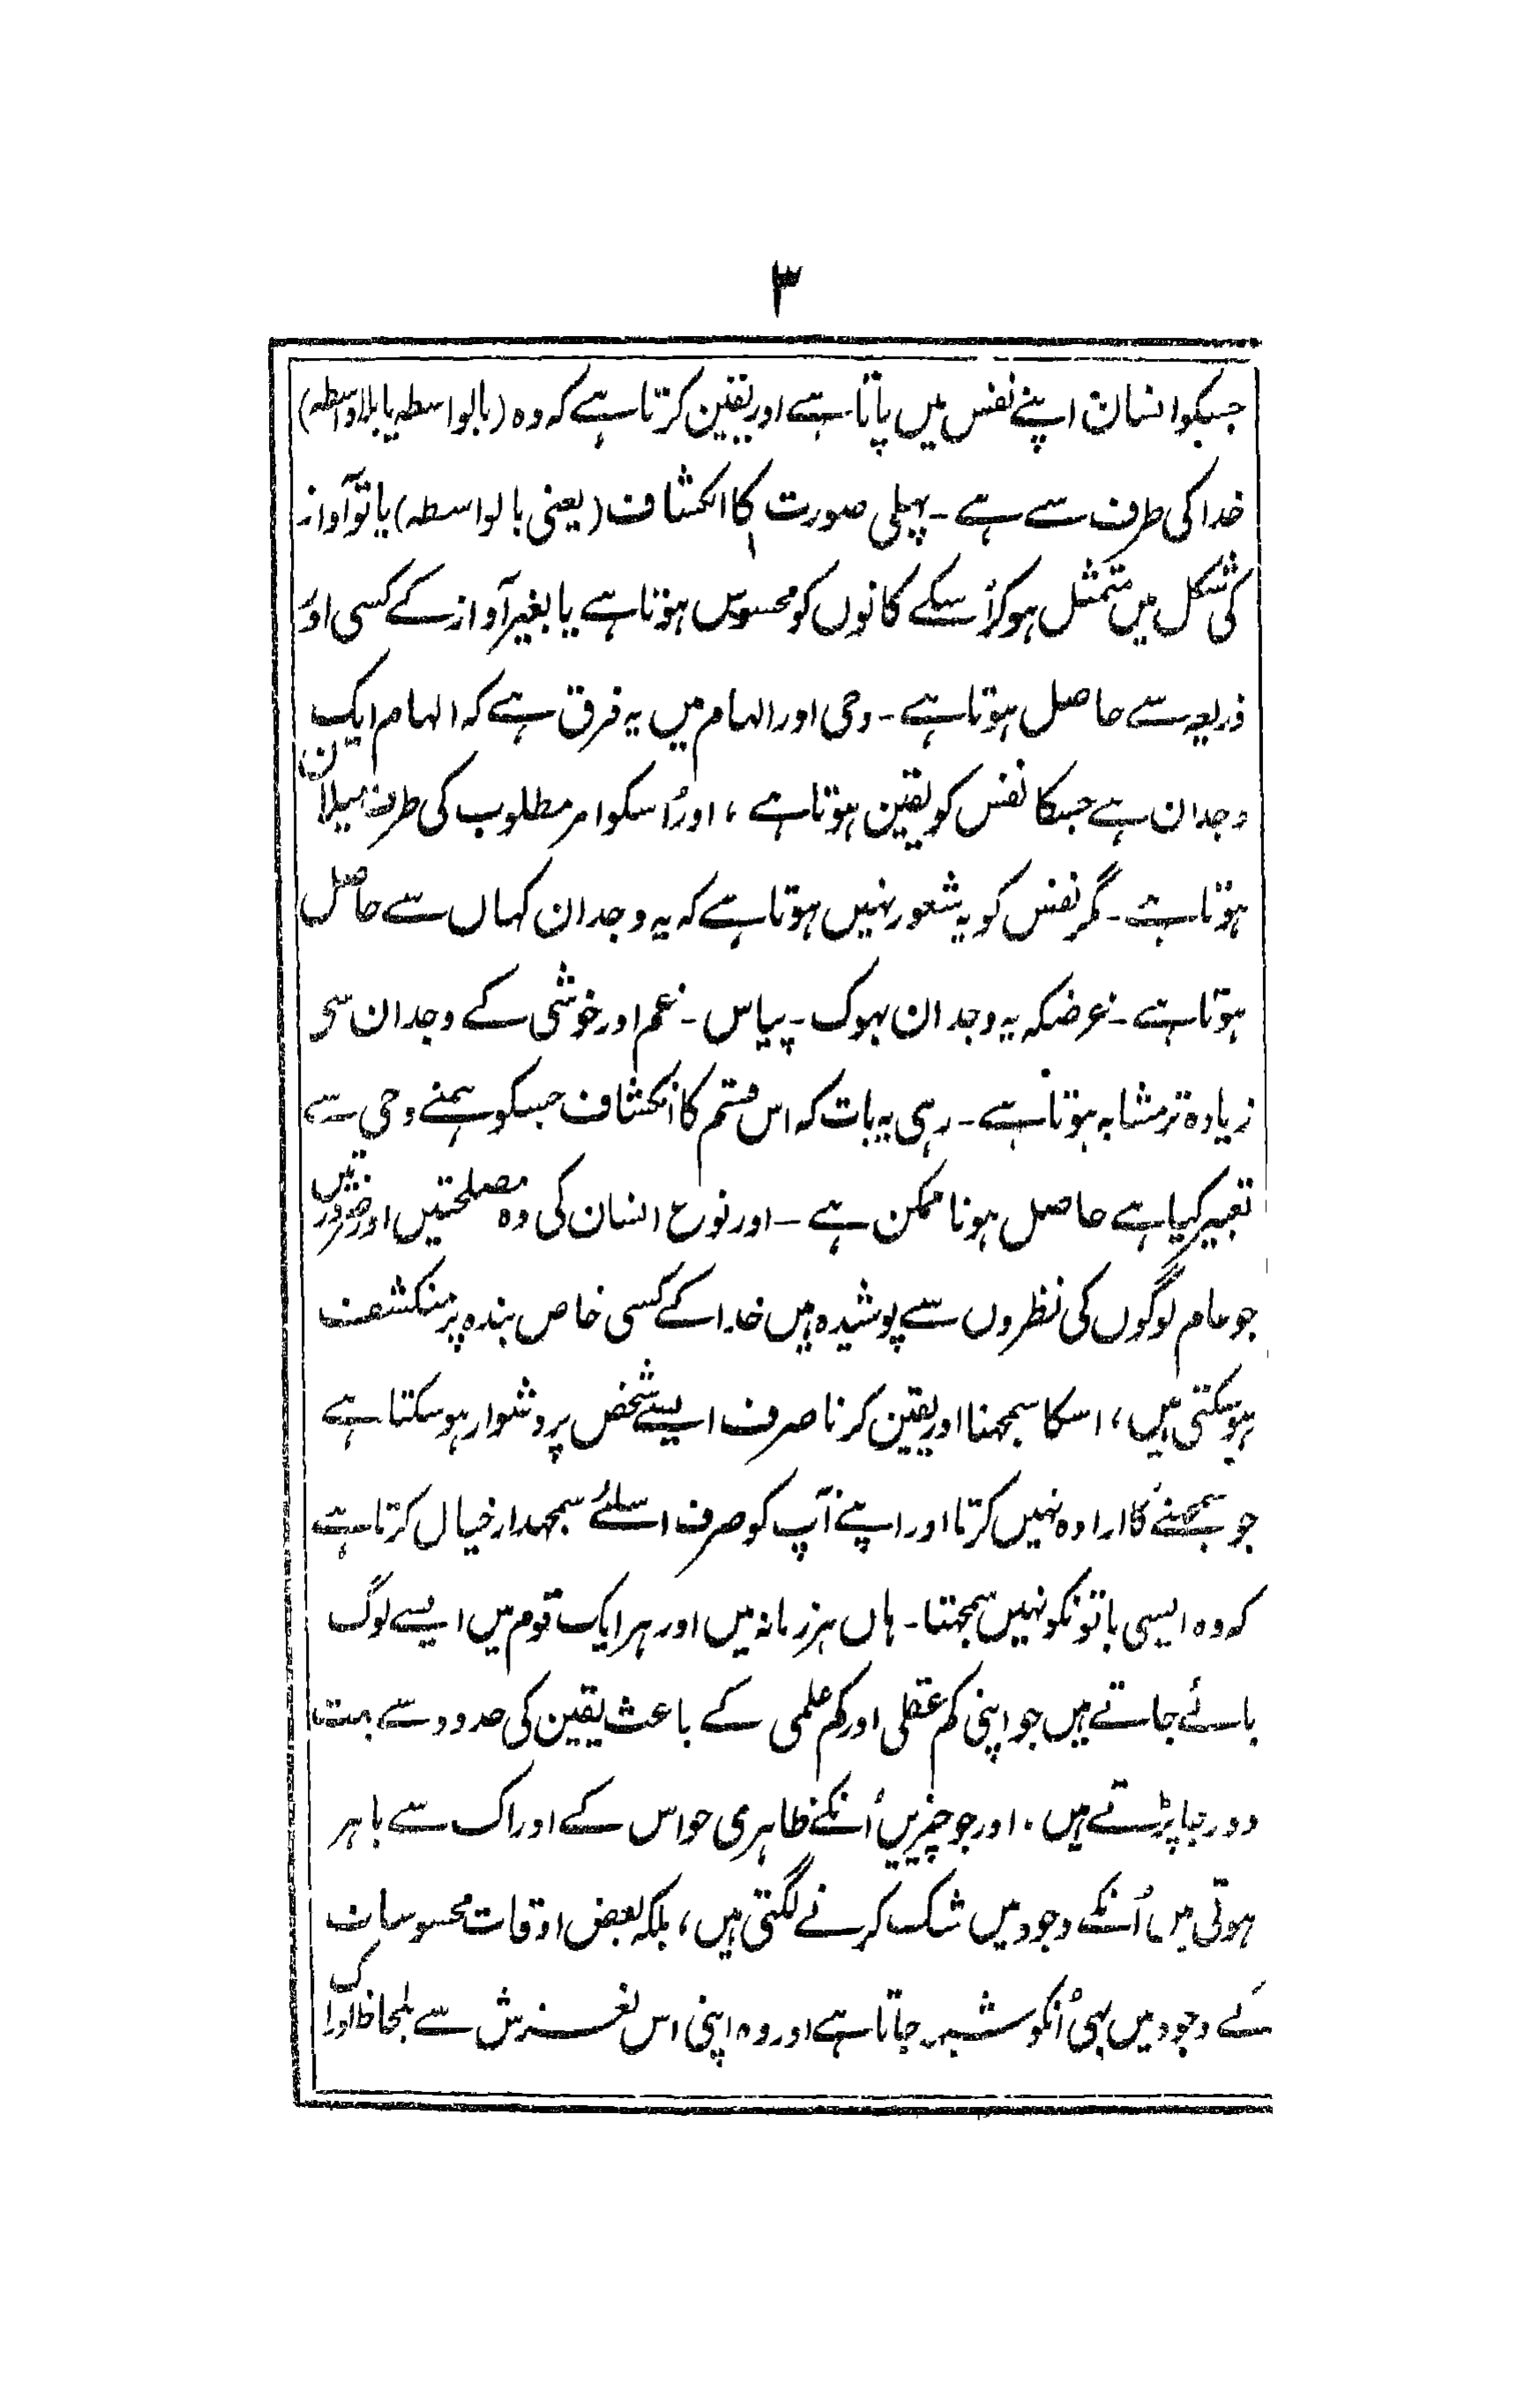 ۳
جسکو انسان اپنے نفس میں پاتا ہے اور یقین کرتا ہے کہ وہ (بالواسطہ یا بلاواسطہ)
خدا کی طرف سے ہے ۔ پہلی صورت کا انکشاف (یعنی بالواسطہ) یا تو آواز
کی شکل میں متمثل ہوکر اُسکے کانوں کو محسوس ہوتا ہے یا بغیر آواز کے کسی اور
ذریعہ سے حاصل ہوتا ہے ۔ وحی اور الہام میں یہ فرق ہے کہ الہام ایک
وجدان ہے جسکا نفس کو یقین ہوتا ہے ، اور اُسکو امر مطلوب کی طرف میلان
ہوتا ہے ۔ مگر نفس کو یہ شعور نہیں ہوتا ہے کہ یہ وجدان کہاں سے حاصل
ہوتا ہے ۔ غرضکہ یہ وجدان بہوک ۔ پیاس ۔ غم اور خوشی کے وجدان سی
زیادہ تر مشابہ ہوتا ہے ۔ رہی یہ بات کہ اس قسم کا انکشاف جسکو ہمنے وحی سے
تعبیر کیا ہے حاصل ہونا ممکن ہے ۔ اور نوع انسان کی وہ مصلحتیں اور ضرورتیں
جو عام لوگوں کی نظروں سے پوشیدہ ہیں خدا کے کسی خاص بندہ پر منکشف
ہوسکتی ہیں ، اسکا سمجہنا اور یقین کرنا صرف ایسے شخص پر دشوار ہوسکتا ہے
جو سمجہنے کا ارادہ نہیں کرتا اور اپنے آپ کو صرف اسلئے سمجہدار خیال کرتا ہے
کہ وہ ایسی باتونکو نہیں سمجہتا ۔ ہاں ہر زمانہ میں اور ہر ایک قوم میں ایسے لوگ
پائے جاتے ہیں جو اپنی کم عقلی اور کم علمی کے باعث یقین کی حدود سے بہت
دور جا پڑتے ہیں ۔ اور جو چیزیں اُنکے ظاہری حواس کے ادراک سے باہر
ہوتی ہیں اُنکے وجود میں شک کرنے لگتی ہیں ، بلکہ بعض اوقات محسوسات
کے وجود میں بہی اُنکو شبہ جاتا ہے اور وہ اپنی اس لغزش سے بلحاظ ادراک